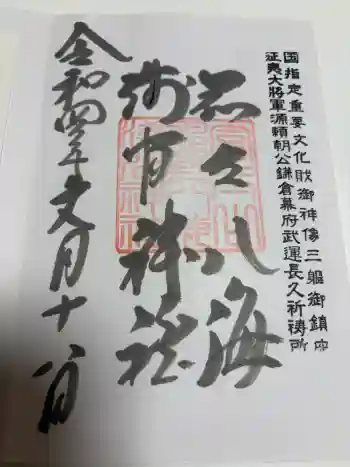 国指定重要文化財御神像三軀御鎮守
征夷大將軍源頼朝公鎌倉幕府武運長久祈祷所
忍野八海
浅間神社
令和四年文月十八日